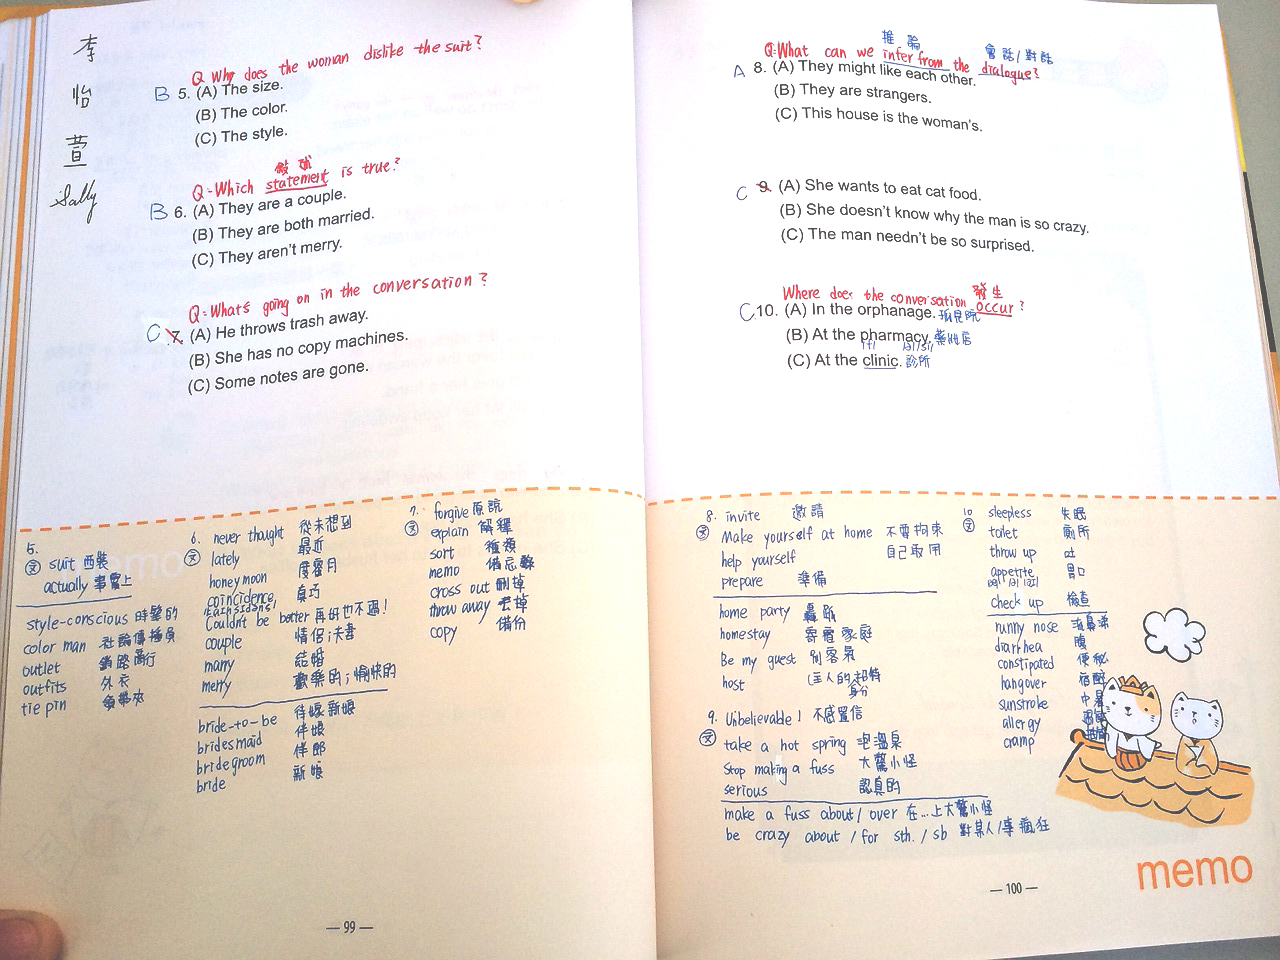 李
怡
萱
Sally
Q Why does the woman dislike the suit?
B 5. (A) The size.
(B) The color.
(C) The style.
敍述
Q:Which statement is true?
B 6. (A) They are a couple.
(B) They are both married.
(C) They aren't merry.
Q:What's going on in the conversation?
C 7. (A) He throws trash away.
(B) She has no copy machines.
(C) Some notes are gone.
5.
文 suit 西裝
actually 事實上
style-conscious 時髦的
color man
outlet
outfits 外衣
tie pin 領帶夾
6. never thought 從未想到
文 lately 最近
honeymoon 度蜜月
coincidence 真巧
Couldn't be better 再好也不過!
couple 情侶;夫妻
marry 結婚
merry 歡樂的;愉快的
bride-to-be 待嫁新娘
bridesmaid 伴娘
bridegroom 伴郎
bride 新娘
7. forgive 原諒
文 explain 解釋
sort 種類
memo 備忘錄
cross out 刪掉
throw away 丟掉
copy 備份
— 99 —
推論 會話/對話
Q:What can we infer from the dialogue?
A 8. (A) They might like each other.
(B) They are strangers.
(C) This house is the woman's.
C 9. (A) She wants to eat cat food.
(B) She doesn't know why the man is so crazy.
(C) The man needn't be so surprised.
發生
Where does the conversation occur?
C 10. (A) In the orphanage. 孤兒院
(B) At the pharmacy. 藥妝店
(C) At the clinic. 診所
8. invite 邀請
文 Make yourself at home 不要拘束
help yourself 自己取用
prepare 準備
home party 轟趴
homestay 寄宿家庭
Be my guest 別客氣
host
9. Unbelievable! 不感置信
文 take a hot spring 泡溫泉
Stop making a fuss 大驚小怪
serious 認真的
make a fuss about/over 在...上大驚小怪
be crazy about/for sth./sb 對某人/事瘋狂
10 sleepless 失眠
文 toilet 廁所
throw up 吐
appetite 胃口
check up 檢查
runny nose
diarrhea
constipated 便秘
hangover 宿醉
sunstroke 中暑
allergy
cramp
memo
— 100 —